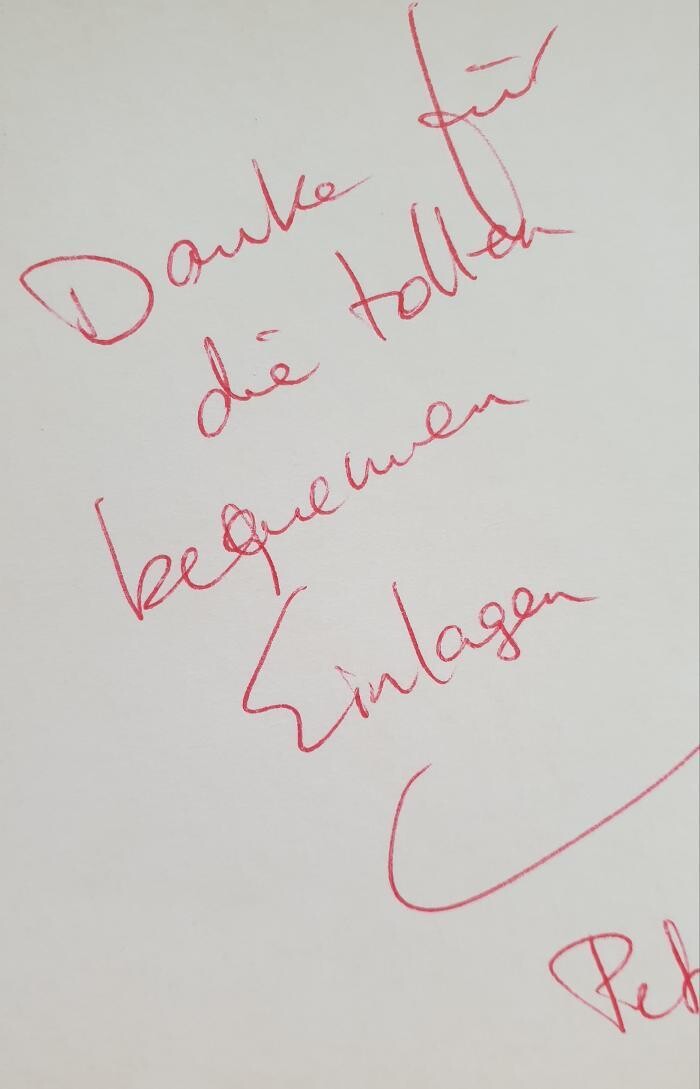 Danke für
die tollen
bequemen
Einlagen